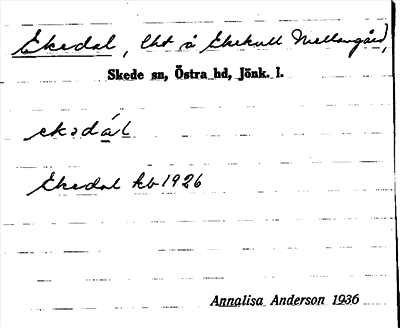 Ekedal, lht å Ekekull Mellangård,
Skede sn, Östra hd, Jönk. l.
ekədál
Ekedal kb 1926
Annalisa Anderson 1936